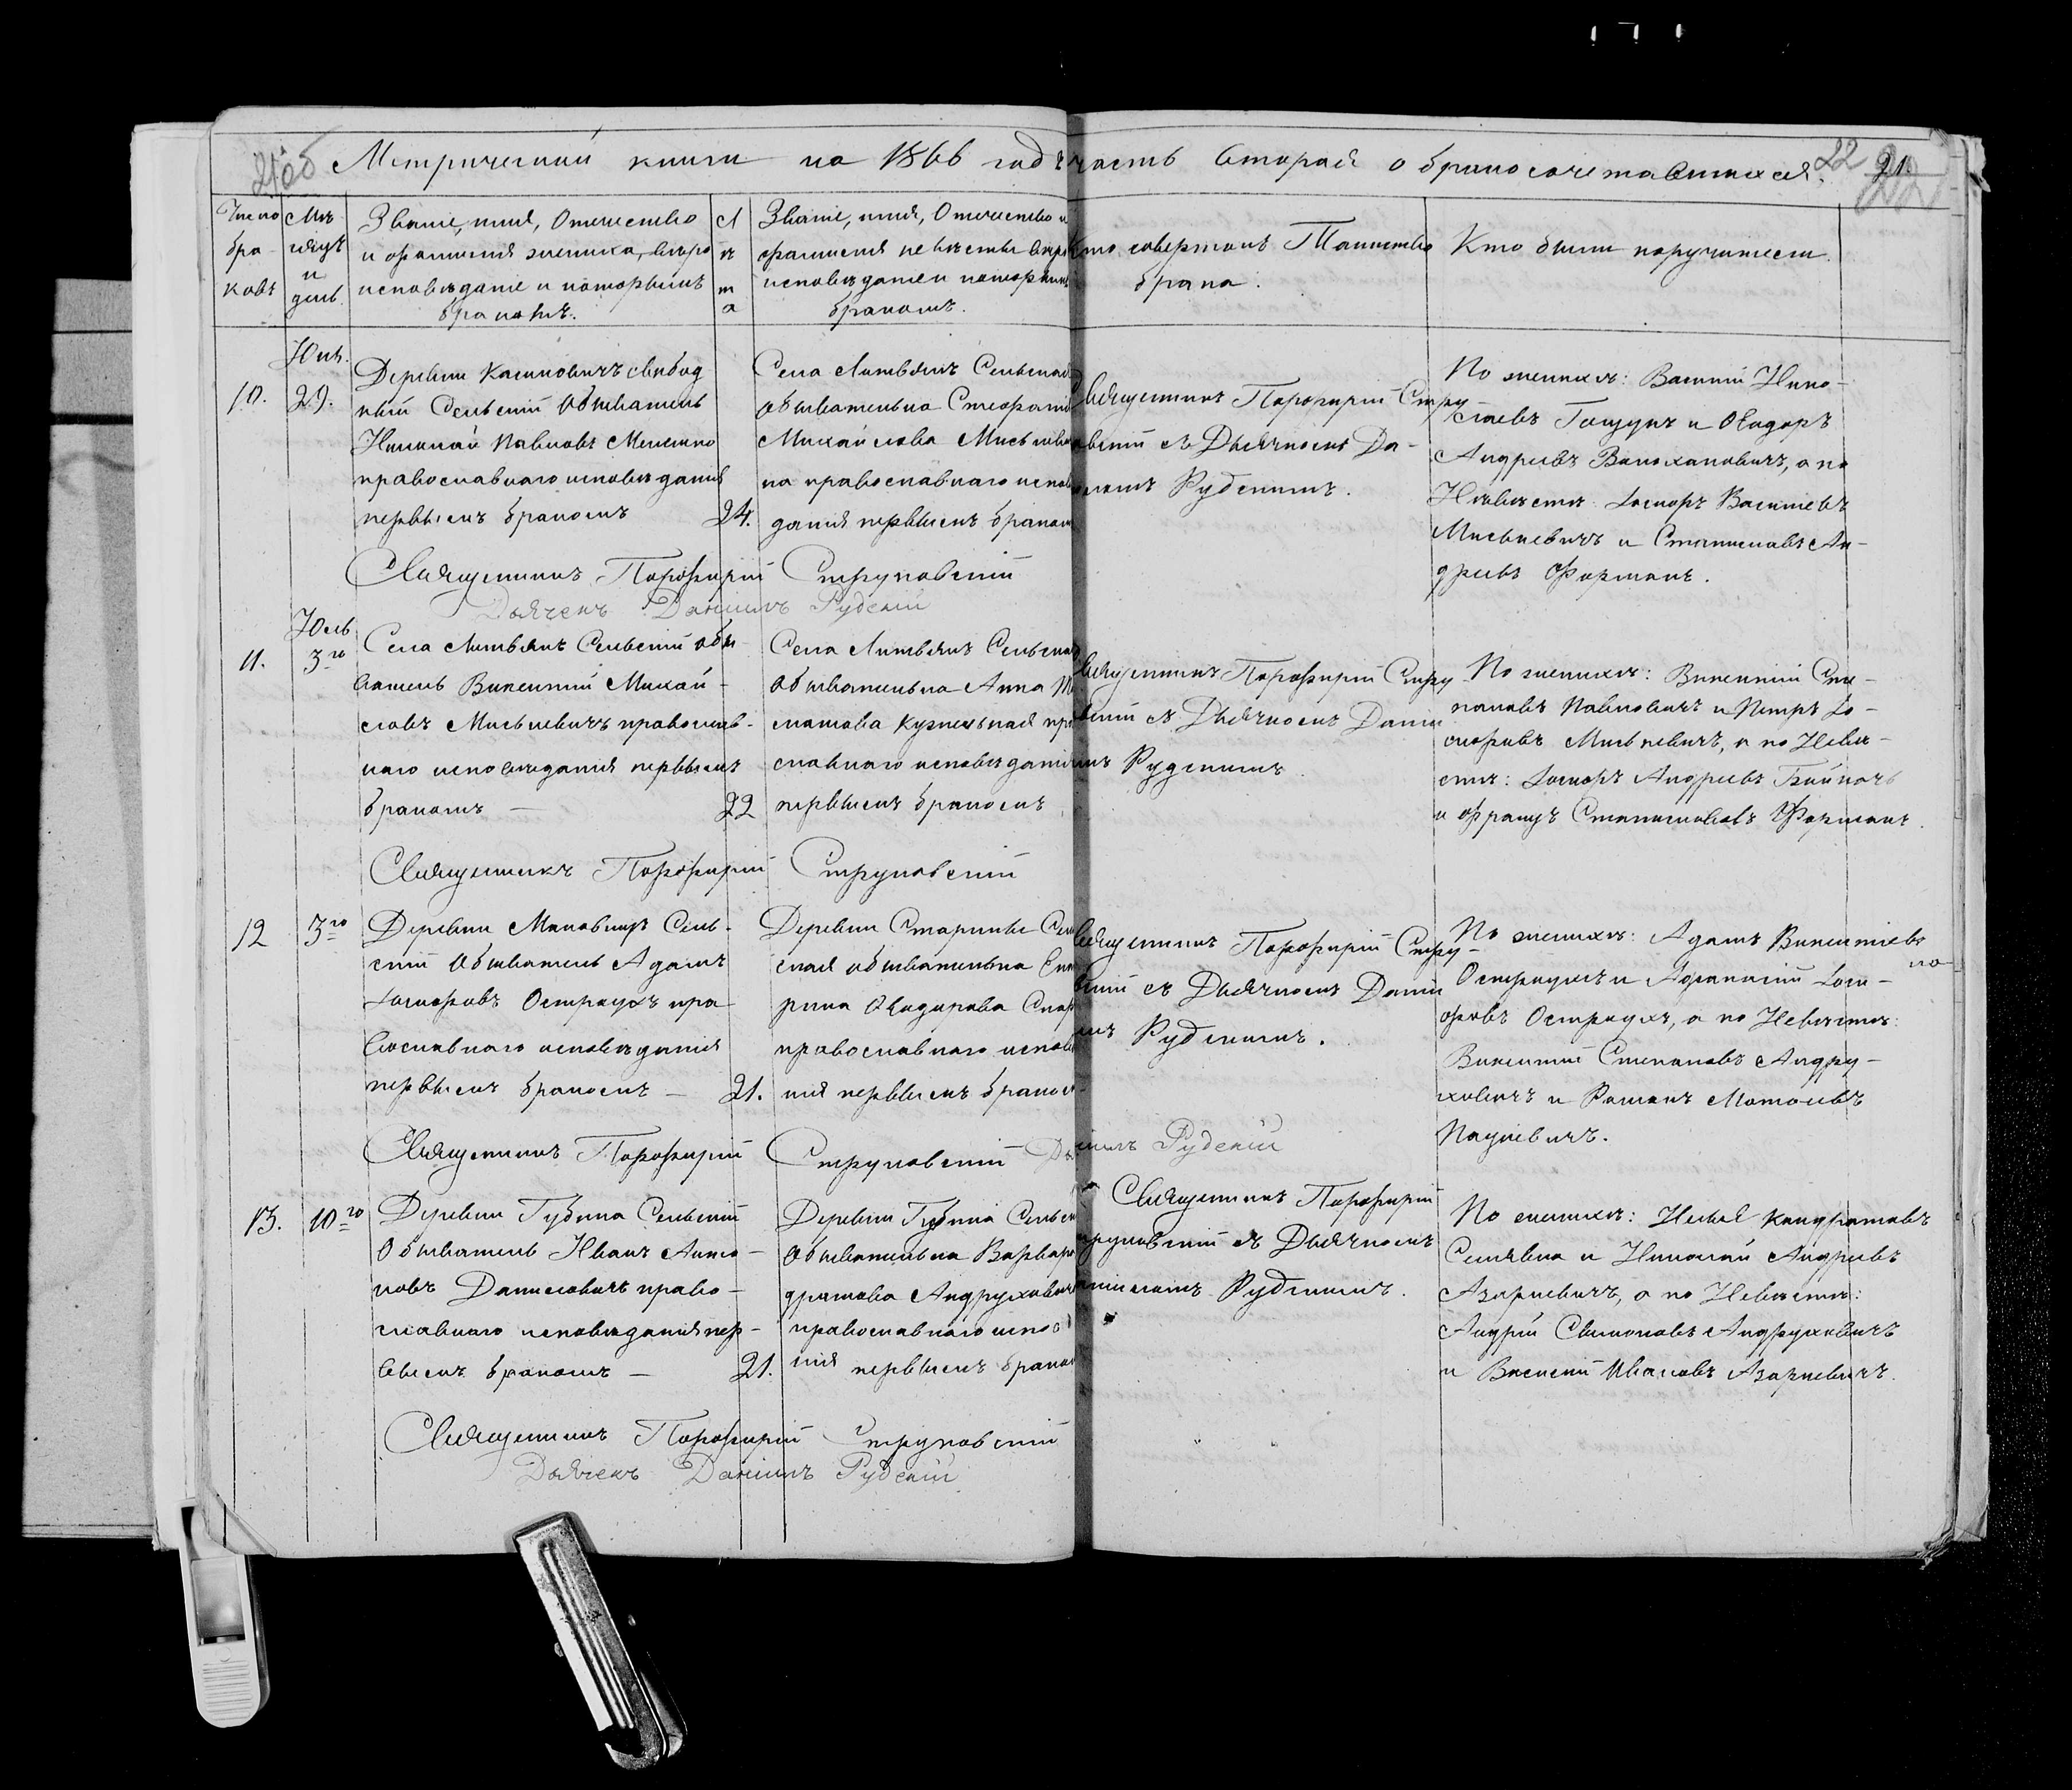 21об Метрической книги на 1866 годъ часть вторая о бракосочетавшихся. 22 21.
Число бра- ковъ
Мѣ- сяцъ и день
Званіе, имя, Отчество
и фамилія жениха, вѣро
исповѣданіе и которымъ
бракомъ.
Лѣта
Званіе, имя, Отчество и
фамилія невѣсты вѣро
исповѣданіе и которым
бракомъ.
Кто совершалъ Таинство
брака.
Кто были поручители.
10.
Юнь.
29.
Деревни Касиловичъ свобод
ный Сельскій Обыватель
Николай Павловъ
православнаго исповѣданія
первымъ бракомъ 24.
Села Литвянъ Сельская
обывателька Стефанія
Михайлова
на православнаго исповѣ
данія первымъ браком
Священникъ Порфирій Стру
овскій съ Дьячкомъ Да-
ніломъ Рудскимъ.
По женихѣ: Василій Нико-
лаевъ Гацукъ и Ѳеодоръ
Андреевъ Валахановичъ, а по
Невѣстѣ: Іосифъ Василіевъ
Миськевичъ и Станиславъ Ан-
дреевъ Фурманъ.
Священникъ Порфирій Струковскій
Дьячекъ Даніилъ Рудскій
11.
Юль
3го
Села Литвянъ Сельскій обы
ватель Викентій Михай-
ловъ Миськевичъ православ-
наго исповѣданія первымъ
бракомъ — 22
Села Литвянъ Сельская
обывателька Анна
православнаго исповѣданія
первымъ бракомъ
Священникъ Порфирій Стру
вскій съ Дьячкомъ Даніи
ломъ Рудскимъ.
По женихѣ: Викентій Сте-
пановъ Павловичъ и Петръ Іо-
сифовъ Миськевичъ, а по Невѣ-
стѣ: Іосифъ Андреевъ Бойкачъ
и Францъ Станиславовъ Фурманъ.
Священникъ Порфирій Струковскій
12
3го
Деревни Маковищъ Сель-
скій Обыватель Адамъ
Іосифовъ Остраухъ пра
вославнаго исповѣданія
первымъ бракомъ — 21.
Деревни Старинки Сель
ская обывателька Ека
рина Ѳеодорова
православнаго исповѣ
нія первымъ бракомъ
Священникъ Порфирій Стру-
вскій съ Дьячкомъ Даніи
ломъ Рудскимъ.
По женихѣ: Адамъ Викентіевъ
Остраухъ и Афанасій Іоси-
фовъ Остраухъ, а по Невѣстѣ:
Викентій Степановъ Андру-
ховичъ и Романъ Матвѣевъ
Пацкевичъ.
Священникъ Порфирій Струковскій Даніилъ Рудскій
13.
10го
Деревни Губина Сельскій
Обыватель Иванъ Анто-
новъ Даниловичъ право-
славнаго исповѣданія пер-
вымъ бракомъ — 21.
Деревни Губина Сельск
обывателька Варвара
дратова Андрухович
православнаго испов
нія первымъ браком
Священникъ Порфирій
Струковскій съ Дьячкомъ
Даніиломъ Рудскимъ.
По женихѣ: Илья Кондратовъ
Селявка и Николай Андреевъ
Азаркевичъ, а по Невѣстѣ:
Андрей Симоновъ Андруховичъ
и Василій Ивановъ Азаркевичъ.
Священникъ Порфирій Струковскій
Дьячекъ Даніилъ Рудскій